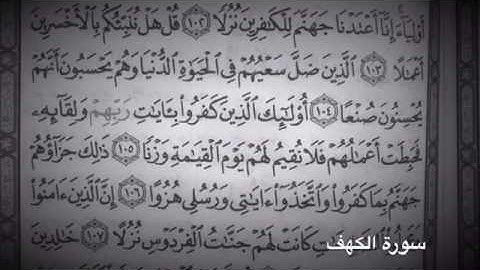 أَوْلِيَآءَ إِنَّآ أَعْتَدْنَا جَهَنَّمَ لِلْكَٰفِرِينَ نُزُلًا ١٠٢ قُلْ هَلْ نُنَبِّئُكُم بِالْأَخْسَرِينَ
أَعْمَٰلًا ١٠٣ الَّذِينَ ضَلَّ سَعْيُهُمْ فِي الْحَيَوٰةِ الدُّنْيَا وَهُمْ يَحْسَبُونَ أَنَّهُمْ
يُحْسِنُونَ صُنْعًا ١٠٤ أُو۟لَٰٓئِكَ الَّذِينَ كَفَرُوا۟ بِـَٔايَٰتِ رَبِّهِمْ وَلِقَآئِهِۦ
فَحَبِطَتْ أَعْمَٰلُهُمْ فَلَا نُقِيمُ لَهُمْ يَوْمَ الْقِيَٰمَةِ وَزْنًا ١٠٥ ذَٰلِكَ جَزَآؤُهُمْ
جَهَنَّمُ بِمَا كَفَرُوا۟ وَاتَّخَذُوٓا۟ ءَايَٰتِي وَرُسُلِي هُزُوًا ١٠٦ إِنَّ الَّذِينَ ءَامَنُوا۟
كَانَتْ لَهُمْ جَنَّٰتُ الْفِرْدَوْسِ نُزُلًا ١٠٧ خَٰلِدِينَ
سورة الكهف